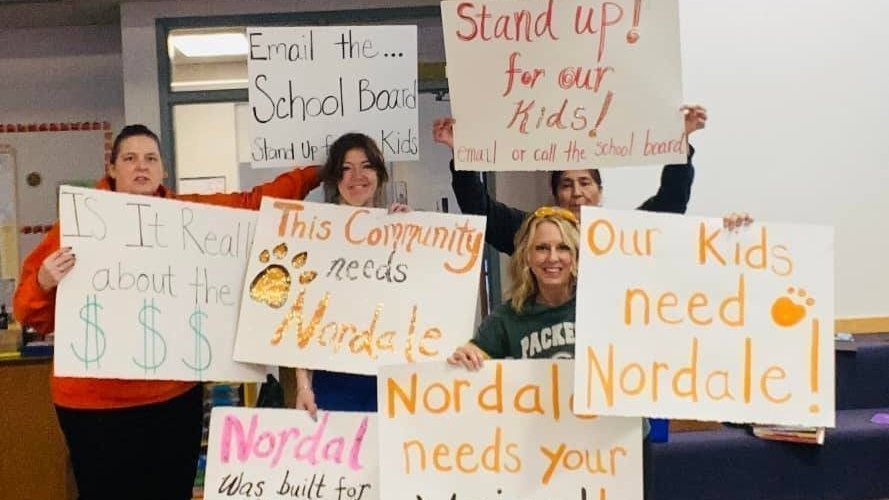 Email the...
School Board
Stand Up for Kids
Stand up!
for our
Kids!
email or call the school board
IS It Reall
about the
$ $ $
This Community
needs
Nordale
Our Kids
need
Nordale!
PACKE
Nordal
needs your
Nordal
was built for